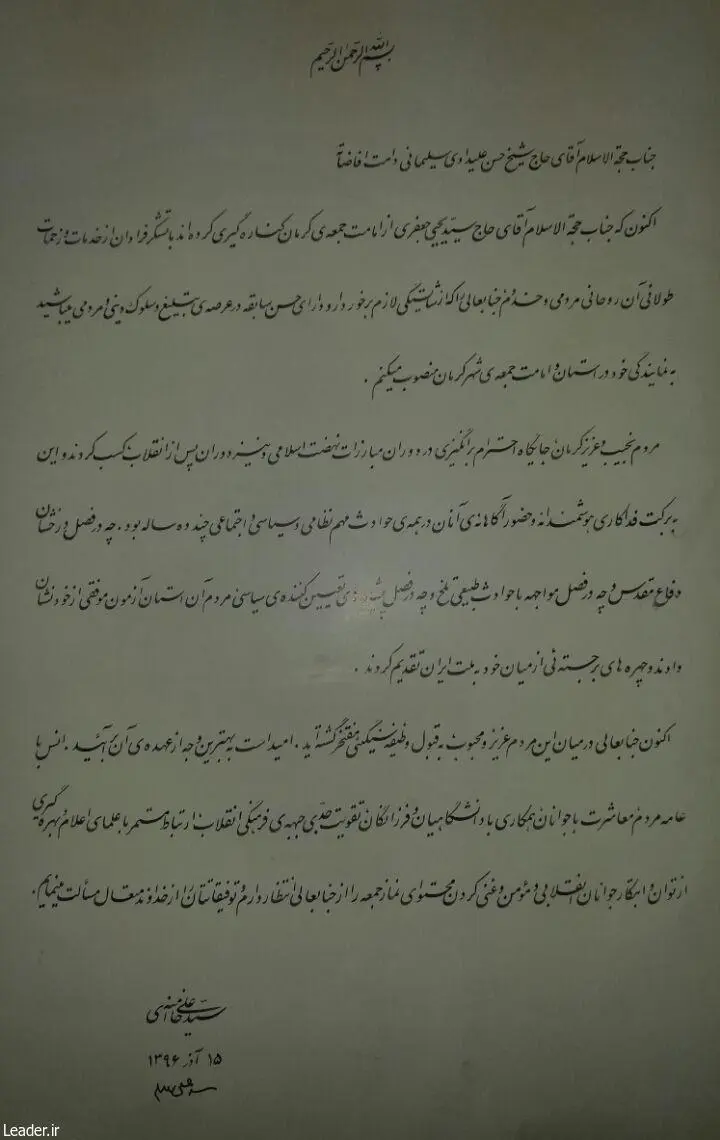 بسم الله الرحمن الرحیم
جناب حجة الاسلام آقای حاج شیخ حسن علیدادی سلیمانی دامت افاضاته
اکنون که جناب حجة الاسلام آقای حاج سید یحیی جعفری از امامت جمعه‌ی کرمان کناره‌گیری کرده‌اند با تشکر فراوان از خدمات و زحمات
طولانی آن روحانی مردمی و خدوم جنابعالی را که از شایستگی لازم برخوردار و دارای حسن سابقه در عرصه‌ی تبلیغ و سلوک دینی و مردمی میباشید
به نمایندگی خود در استان و امامت جمعه‌ی شهر کرمان منصوب میکنم .
مردم نجیب و عزیز کرمان جایگاه احترام برانگیزی در دوران مبارزات نهضت اسلامی و نیز دوران پس از انقلاب کسب کردند و این
به برکت فداکاری هوشمندانه و حضور آگاهانه‌ی آنان در همه‌ی حوادث مهم نظامی و سیاسی و اجتماعی چند ده ساله بود . چه در فصل درخشان
دفاع مقدس و چه در فصل مواجهه با حوادث طبیعی تلخ و چه در فصل تعیین کننده‌ی سیاسی مردم آن استان آزمون موفقی از خود نشان
دادند و چهره‌های برجسته‌ئی از میان خود به ملت ایران تقدیم کردند .
اکنون جنابعالی در میان این مردم عزیز و محبوب به قبول وظیفه سنگینی مفتخر گشته‌اید . امید است به بهترین وجه از عهده‌ی آن برآئید . انس با
عامه مردم معاشرت با جوانان همکاری با دانشگاهیان و فرزانگان تقویت جدی جبهه‌ی فرهنگی انقلاب ارتباط مستمر با علمای اعلام بهره‌گیری
از توان و ابتکار جوانان انقلابی و مؤمن و غنی کردن محتوای نماز جمعه را از جنابعالی انتظار دارم و توفیقاتتان را از خداوند متعال مسألت مینمایم .
سید علی خامنه‌ای
۱۵ آذر ۱۳۹۶
Leader.ir